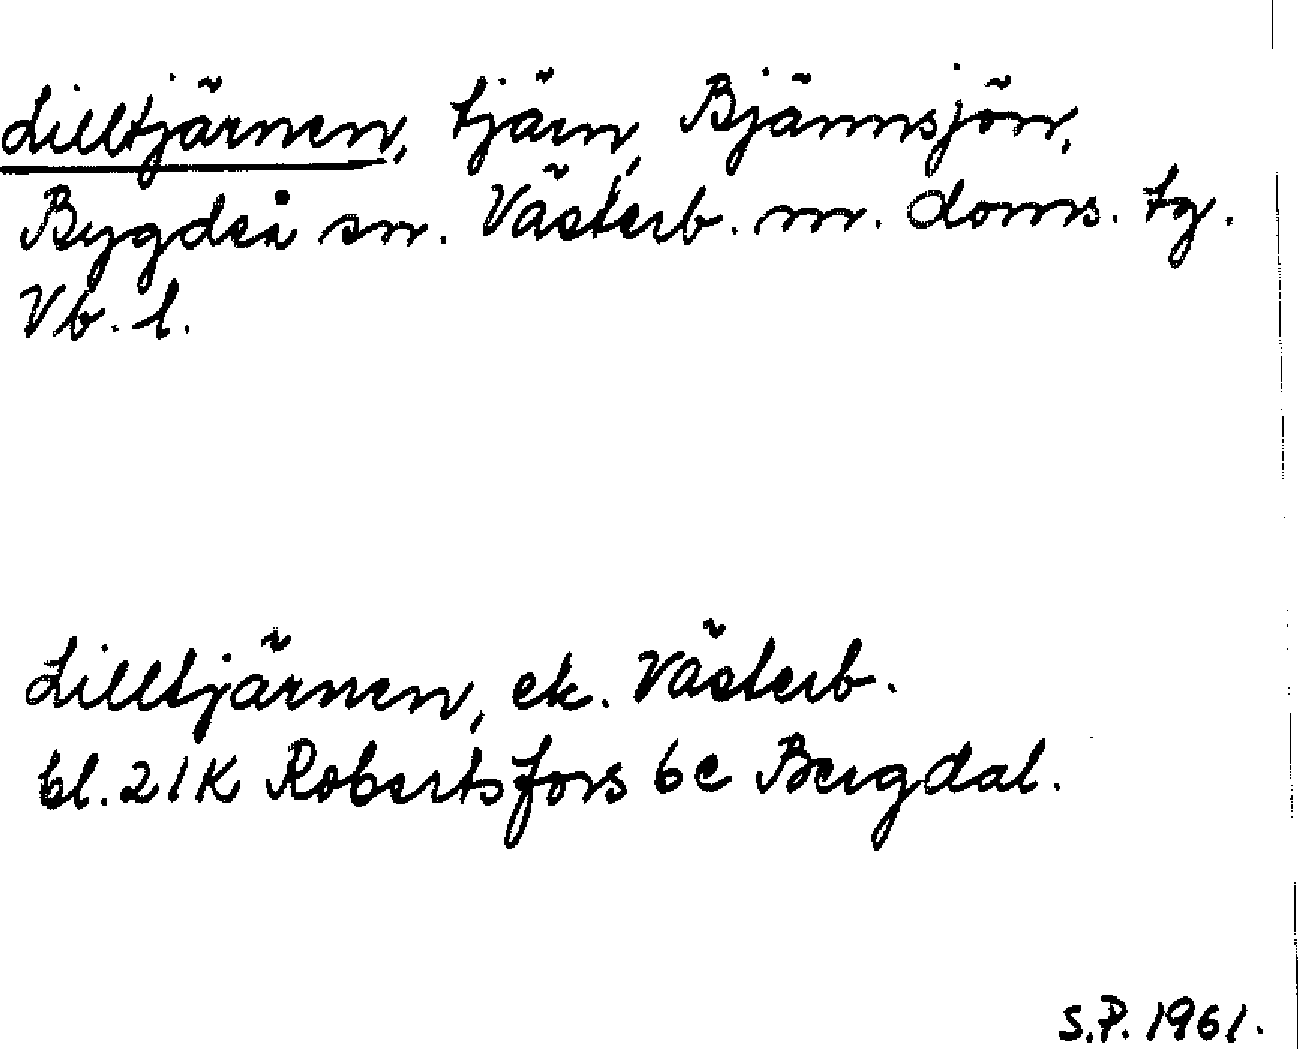 Lilltjärnen, tjärn, Bjännsjön,
Bygdeå sn. Västerb. m. doms. tg.
Vb. l.
Lilltjärnen, ek. Västerb.
bl. 21K Robertsfors 6c Bergdal.
S.P. 1961.